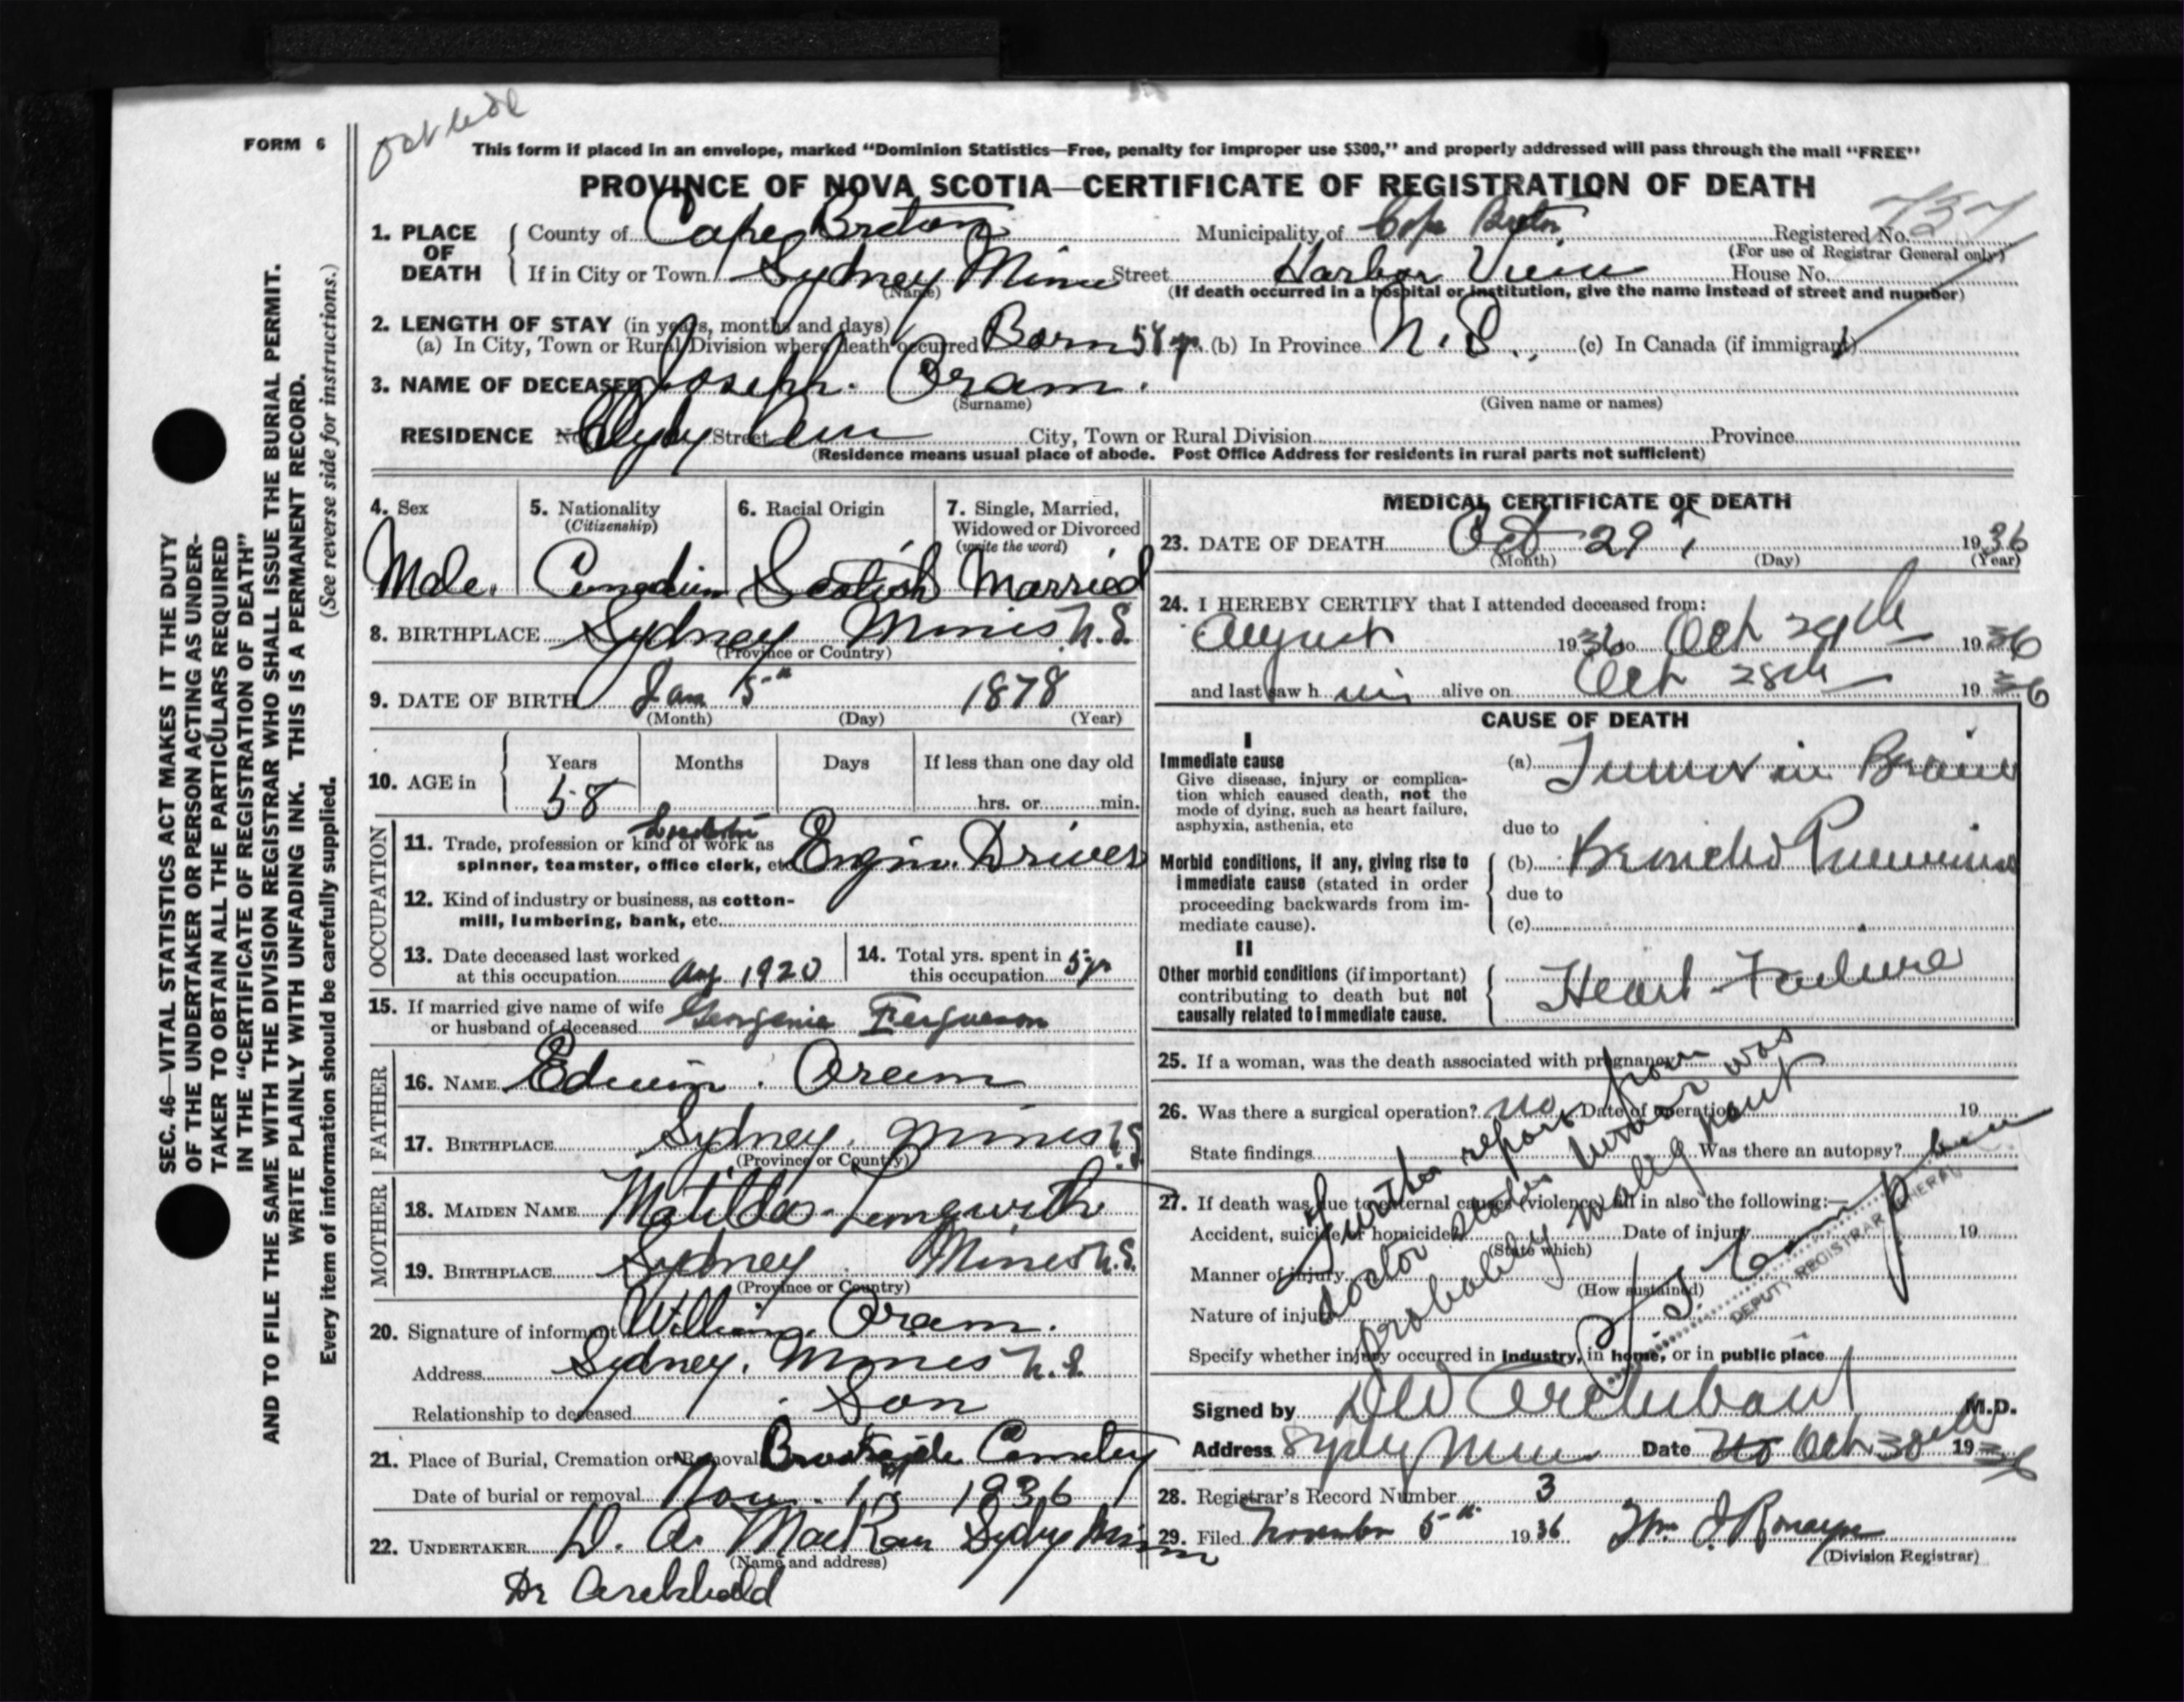 outside
FORM 6
This form if placed in an envelope, marked “Dominion Statistics—Free, penalty for improper use $300,” and properly addressed will pass through the mail “FREE”
PROVINCE OF NOVA SCOTIA—CERTIFICATE OF REGISTRATION OF DEATH
737
1. PLACE OF DEATH
County of Cape Breton Municipality of Cape Breton Registered No.
(For use of Registrar General only)
If in City or Town Sydney Mines Street Harbor View House No.
(Name) (If death occurred in a hospital or institution, give the name instead of street and number)
2. LENGTH OF STAY (in years, months and days)
(a) In City, Town or Rural Division where death occurred Born 58 yrs. (b) In Province N.S. (c) In Canada (if immigrant)
3. NAME OF DECEASED Joseph. Oram.
(Surname) (Given name or names)
RESIDENCE No. Clyde Street Ave City, Town or Rural Division Province
(Residence means usual place of abode. Post Office Address for residents in rural parts not sufficient)
4. Sex
Male.
5. Nationality
(Citizenship)
Canadian
6. Racial Origin
Scotish
7. Single, Married,
Widowed or Divorced
(write the word)
Married
8. BIRTHPLACE Sydney Mines N.S.
(Province or Country)
9. DATE OF BIRTH Jan 5th 1878
(Month) (Day) (Year)
10. AGE in
Years Months Days If less than one day old
58 hrs. or min.
OCCUPATION
11. Trade, profession or kind of work as
spinner, teamster, office clerk, etc. Engine Driver
12. Kind of industry or business, as cotton-
mill, lumbering, bank, etc.
13. Date deceased last worked
at this occupation Aug 1920
14. Total yrs. spent in
this occupation 5 yrs
15. If married give name of wife
or husband of deceased Georgenia Ferguson
FATHER
16. NAME Edwin. Oram
17. BIRTHPLACE Sydney. Mines N.S.
(Province or Country)
MOTHER
18. MAIDEN NAME Matilda Longwirth
19. BIRTHPLACE Sydney Mines N.S.
(Province or Country)
20. Signature of informant William Oram.
Address Sydney. Mines N.S.
Relationship to deceased Son
21. Place of Burial, Cremation or Removal Brookside Cemetery
Date of burial or removal Nov. 1st 1936
22. UNDERTAKER D. A. MacRae Sydny Mines
(Name and address)
Dr Archibald
MEDICAL CERTIFICATE OF DEATH
23. DATE OF DEATH Oct 29 1936
(Month) (Day) (Year)
24. I HEREBY CERTIFY that I attended deceased from:
August 1936 to Oct 29th 1936
and last saw him alive on Oct 28th 1936
CAUSE OF DEATH
I
Immediate cause
Give disease, injury or complica-
tion which caused death, not the
mode of dying, such as heart failure,
asphyxia, asthenia, etc
(a) Tumor in Brain
due to
Morbid conditions, if any, giving rise to
immediate cause (stated in order
proceeding backwards from im-
mediate cause).
(b) Broncho Pneumonia
due to
(c)
II
Other morbid conditions (if important)
contributing to death but not
causally related to immediate cause.
Heart Failure
25. If a woman, was the death associated with pregnancy
26. Was there a surgical operation? no Date of operation 19
State findings Was there an autopsy?
27. If death was due to external causes (violence) fill in also the following:—
Accident, suicide or homicide? Date of injury 19
(State which)
Manner of injury
(How sustained)
Nature of injury
Specify whether injury occurred in industry, in home, or in public place
Further report from
doctor states tumor was
probably malignant
DEPUTY REGISTRAR GENERAL
Signed by D W Archibald M.D.
Address Sydney Mines Date Oct 30th 1936
28. Registrar's Record Number 3
29. Filed November 5th 1936
(Division Registrar)
SEC. 46—VITAL STATISTICS ACT MAKES IT THE DUTY
OF THE UNDERTAKER OR PERSON ACTING AS UNDER-
TAKER TO OBTAIN ALL THE PARTICULARS REQUIRED
IN THE “CERTIFICATE OF REGISTRATION OF DEATH”
AND TO FILE THE SAME WITH THE DIVISION REGISTRAR WHO SHALL ISSUE THE BURIAL PERMIT.
WRITE PLAINLY WITH UNFADING INK. THIS IS A PERMANENT RECORD.
Every item of information should be carefully supplied. (See reverse side for instructions.)